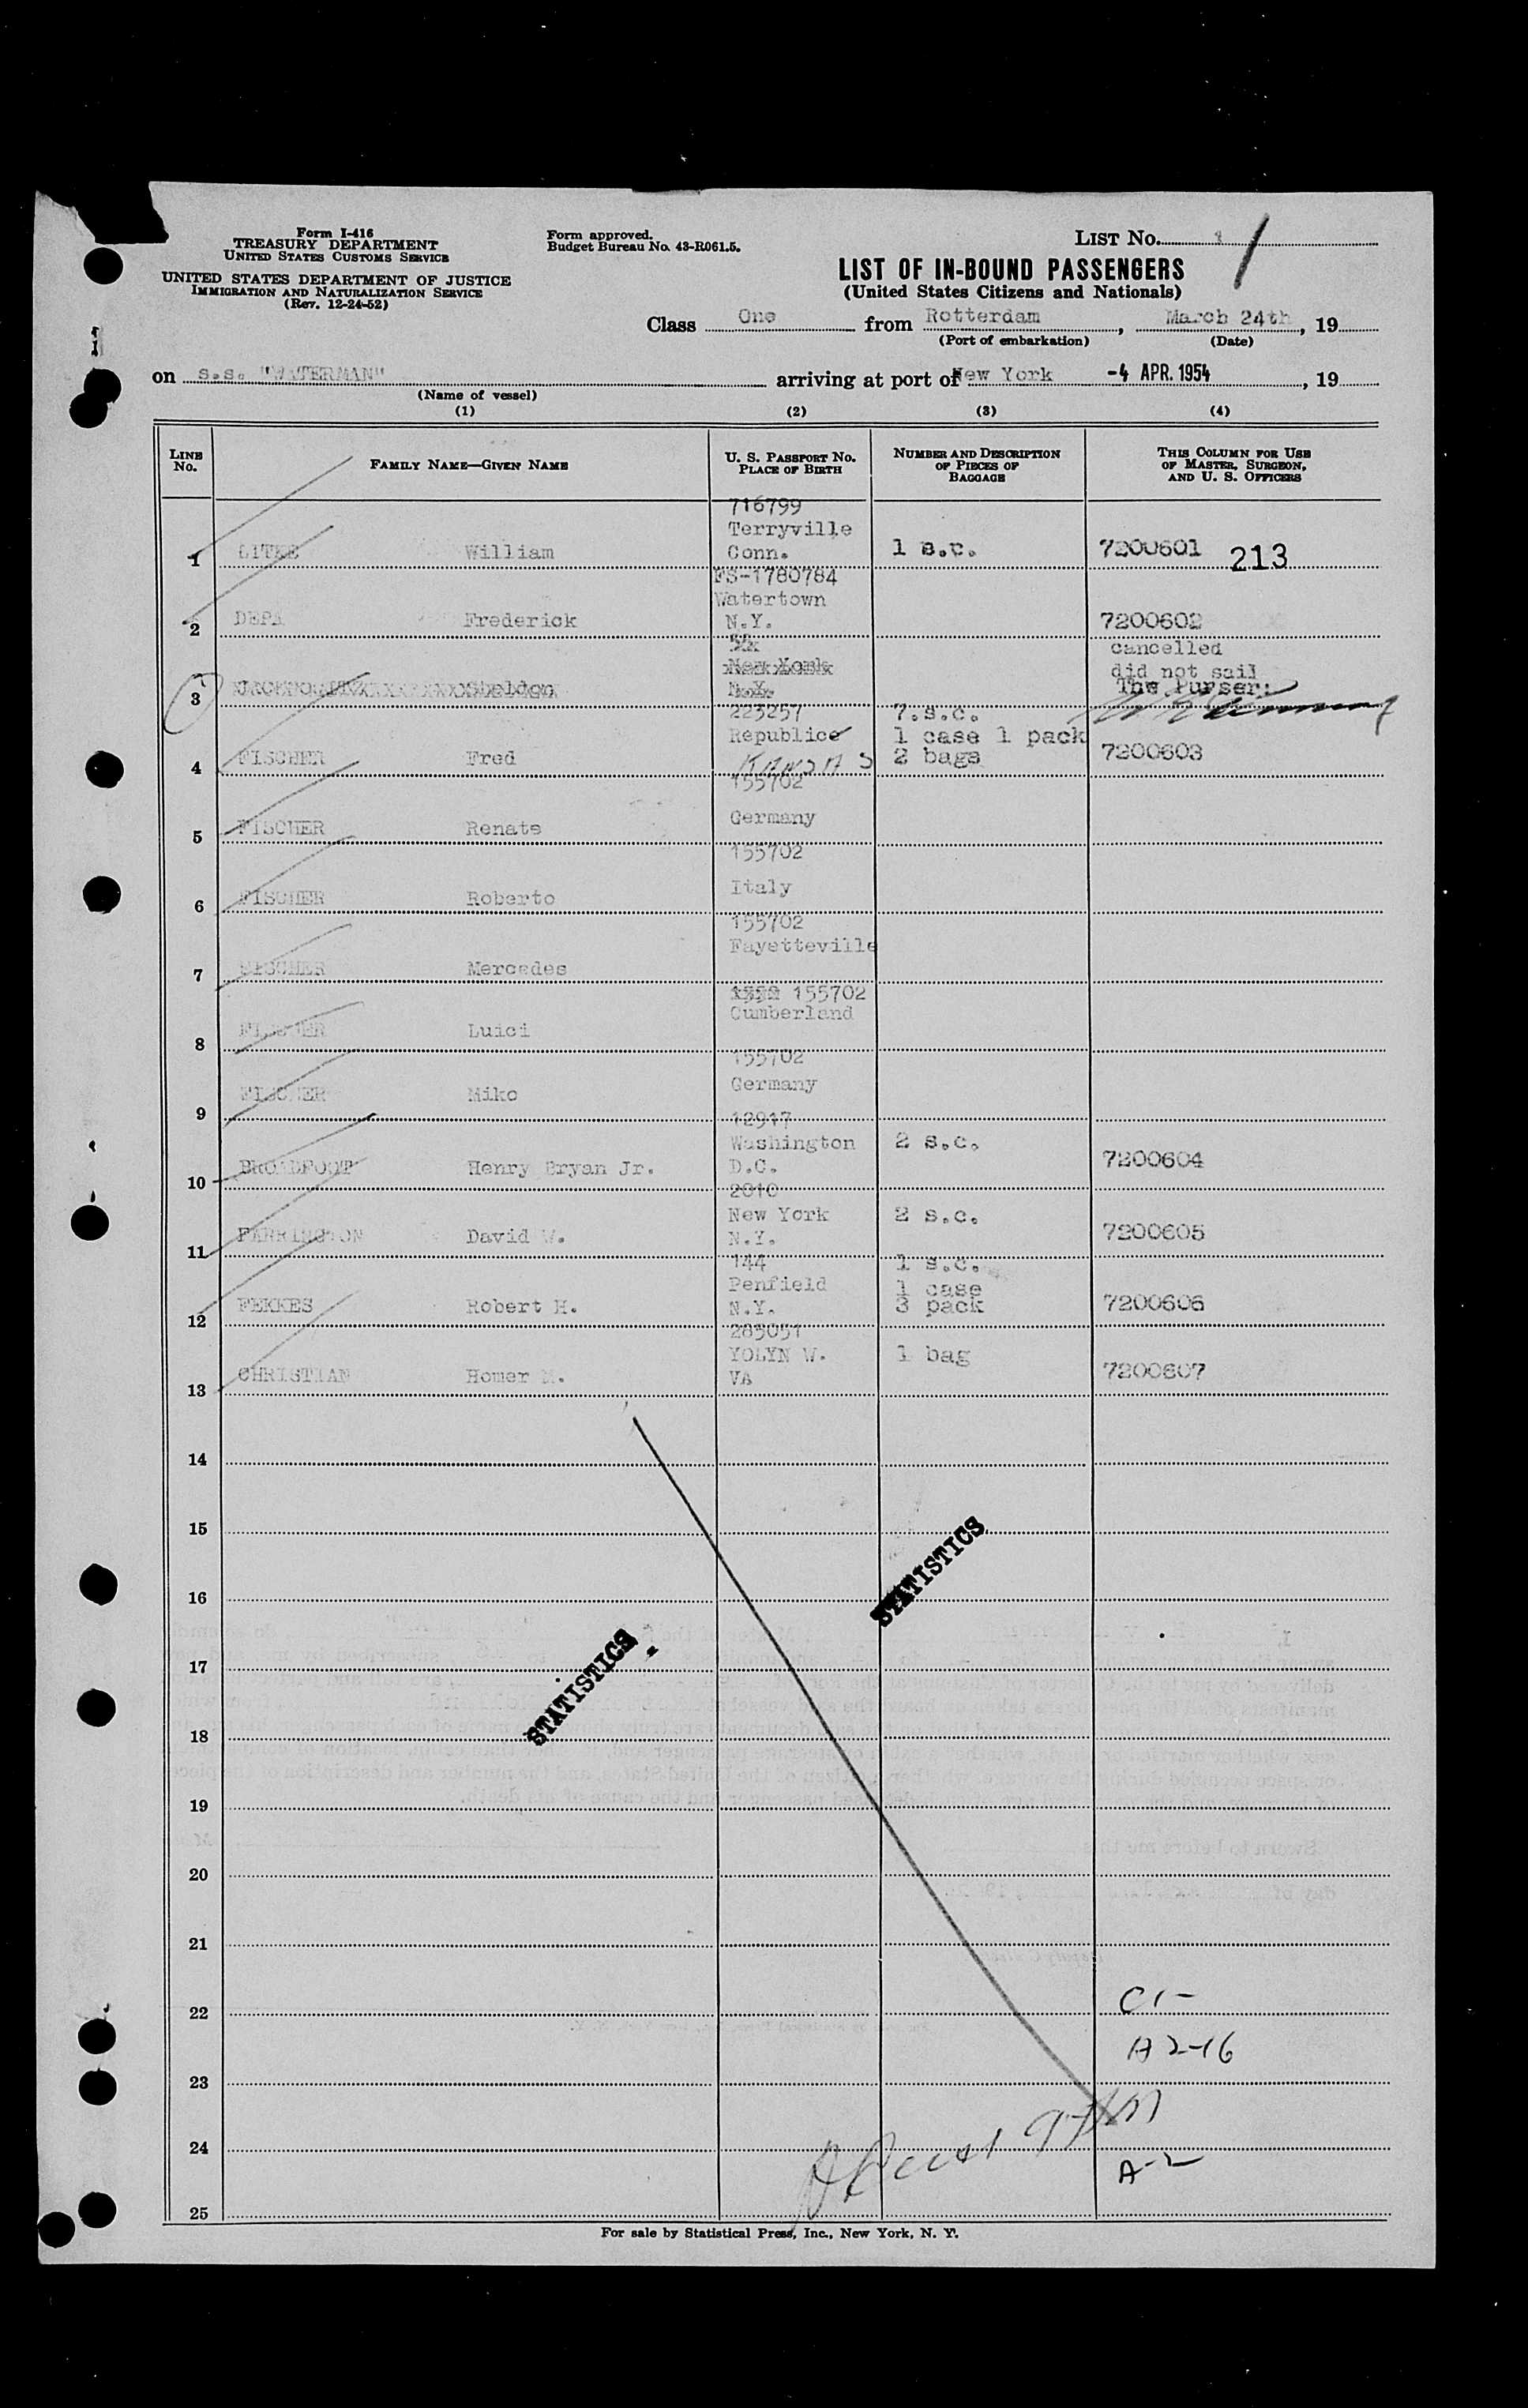 Form I-416
TREASURY DEPARTMENT
UNITED STATES CUSTOMS SERVICE
UNITED STATES DEPARTMENT OF JUSTICE
IMMIGRATION AND NATURALIZATION SERVICE
(Rev. 12-24-52)
Form approved.
Budget Bureau No. 43-R061.5.
LIST No. 1
LIST OF IN-BOUND PASSENGERS
(United States Citizens and Nationals)
Class One from Rotterdam, March 24th, 19
(Port of embarkation) (Date)
on s.s. "WATERMAN" arriving at port of New York -4 APR. 1954, 19
(Name of vessel)
(1) (2) (3) (4)
LINE No. FAMILY NAME—GIVEN NAME U. S. PASSPORT No. PLACE OF BIRTH NUMBER AND DESCRIPTION OF PIECES OF BAGGAGE THIS COLUMN FOR USE OF MASTER, SURGEON, AND U. S. OFFICERS
716799
Terryville
1 LITKE William Conn. 1 s.c. 7200601 213
FS-1780784
Watertown
2 DEPA Frederick N.Y. 7200602
cancelled
New York did not sail
3 Sheldon N.Y. The Purser:
223257 7.s.c.
Republic 1 case 1 pack
4 FISCHER Fred KANSAS 2 bags 7200603
155702
5 FISCHER Renate Germany
155702
6 FISCHER Roberto Italy
155702
Fayetteville
7 FISCHER Mercedes
155702
Cumberland
8 FISCHER Luici
155702
Germany
9 FISCHER Miko
12917
Washington 2 s.c.
10 BROADFOOT Henry Bryan Jr. D.C. 7200604
2010
New York 2 s.c.
11 FARRINGTON David W. N.Y. 7200605
144 1 s.c.
Penfield 1 case
12 FEKKES Robert H. N.Y. 3 pack 7200606
285051
YOLYN W. 1 bag
13 CHRISTIAN Homer M. VA 7200607
14
15
STATISTICS
16
17
STATISTICS
18
19
20
21
22 C 1-
A 2-16
23
24
A-2
25
For sale by Statistical Press, Inc., New York, N. Y.